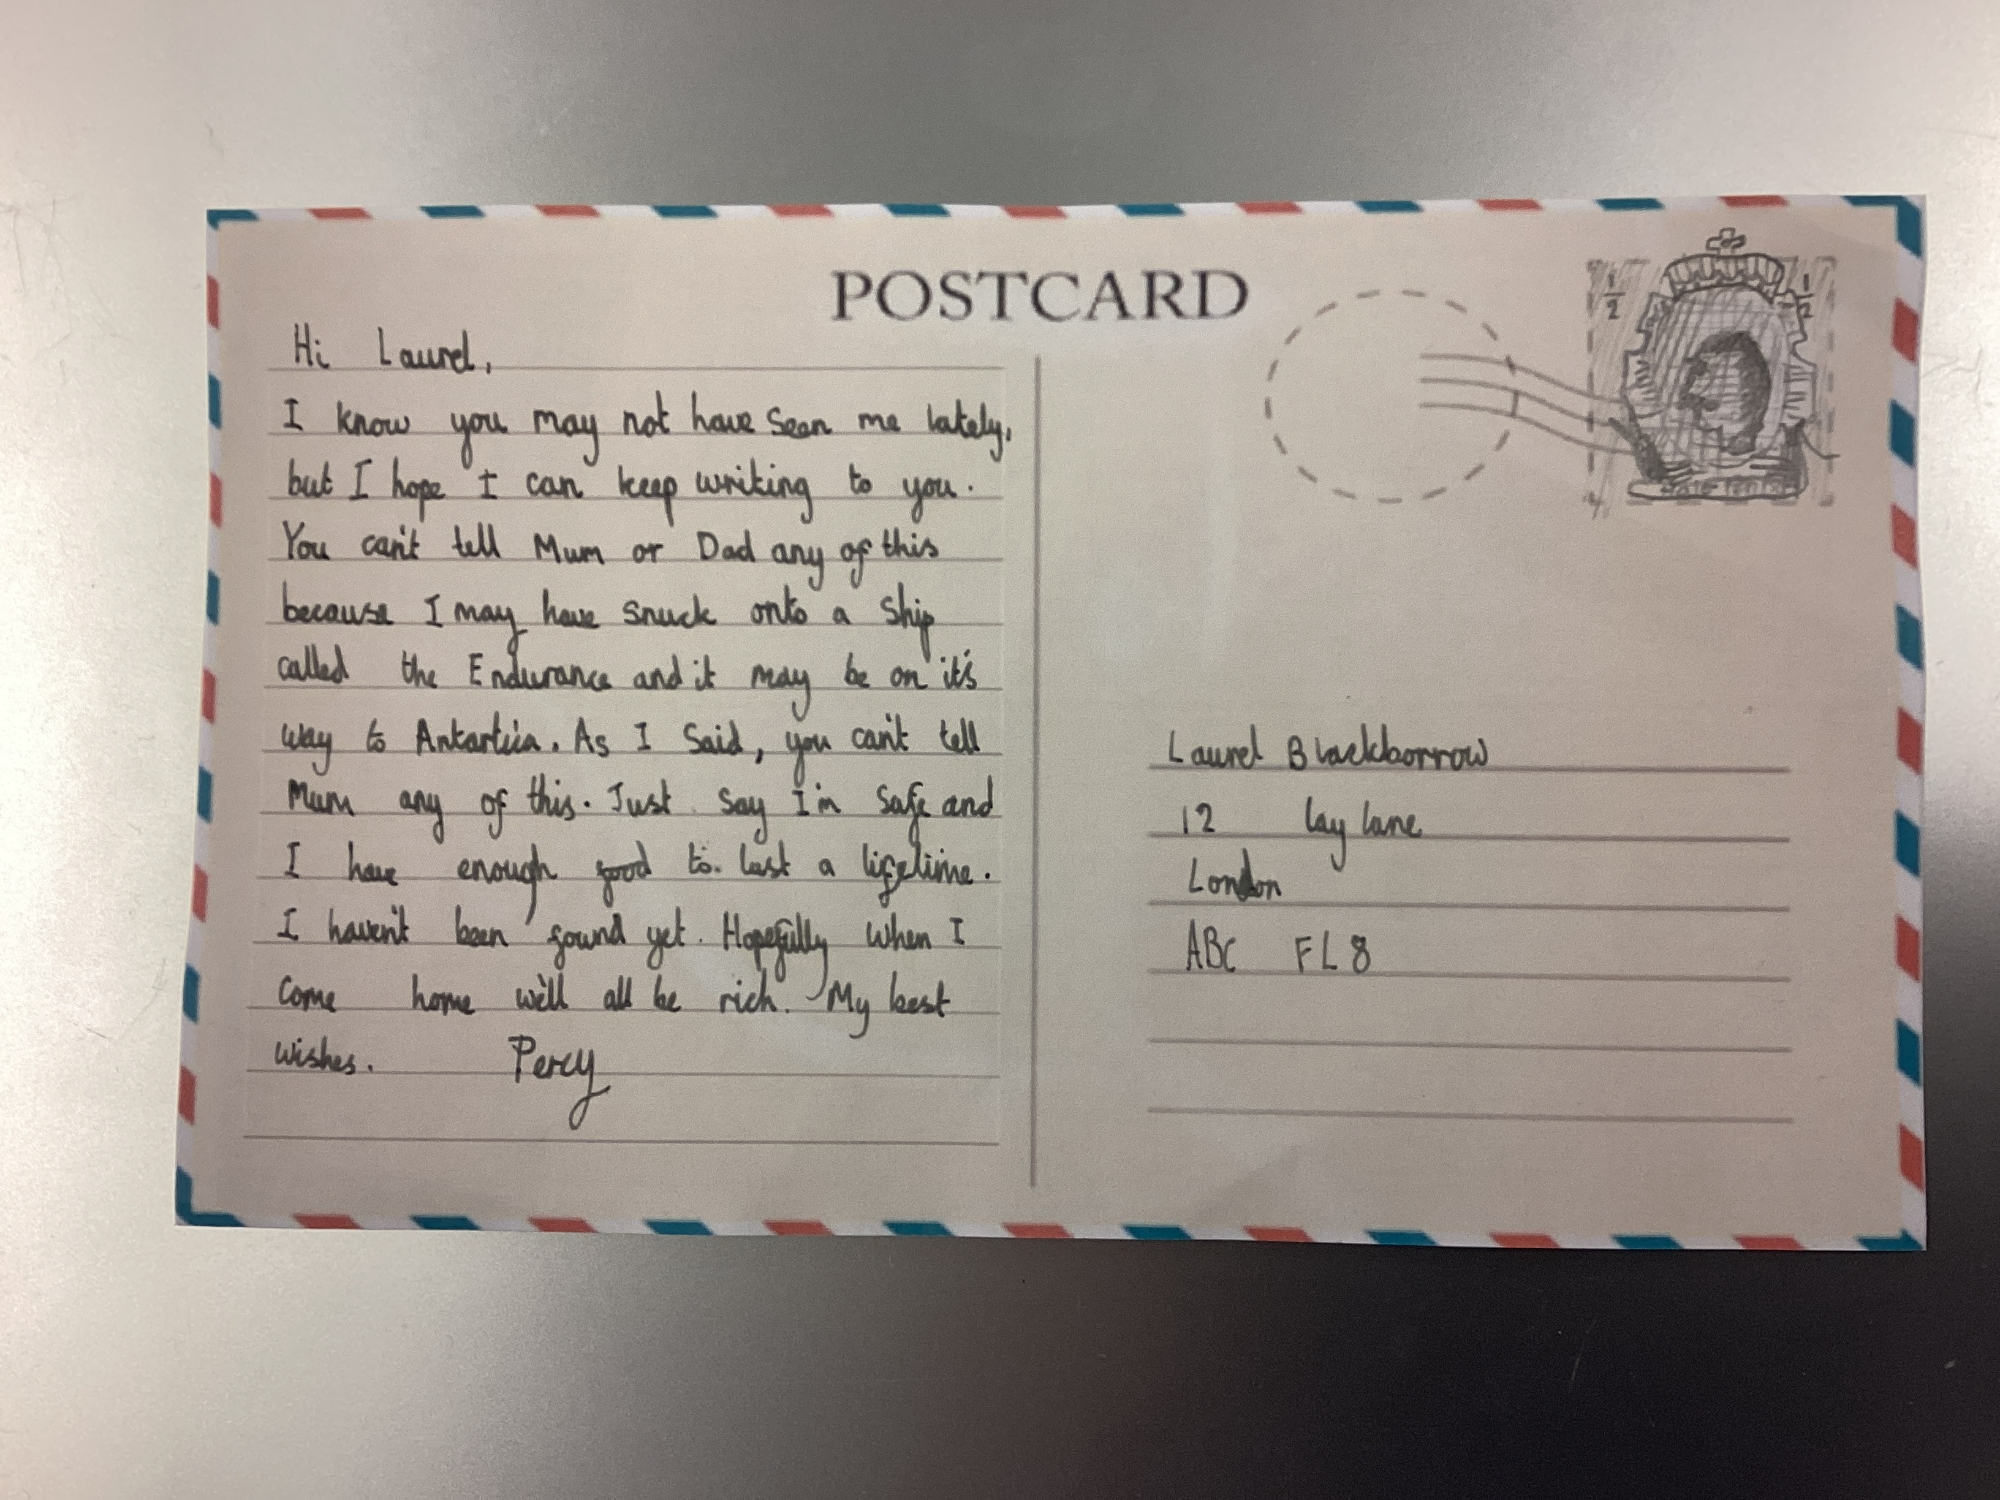 POSTCARD
1/2 1/2
Hi Laurel,
I know you may not have seen me lately,
but I hope I can keep writing to you.
You can't tell Mum or Dad any of this
because I may have snuck onto a ship
called the Endurance and it may be on it's
way to Antartica. As I said, you can't tell
Mum any of this. Just say I'm safe and
I have enough food to last a lifetime.
I haven't been found yet. Hopefully when I
come home we'll all be rich. My best
wishes. Percy
Laurel Blackborrow
12 lay lane
London
ABC FL8